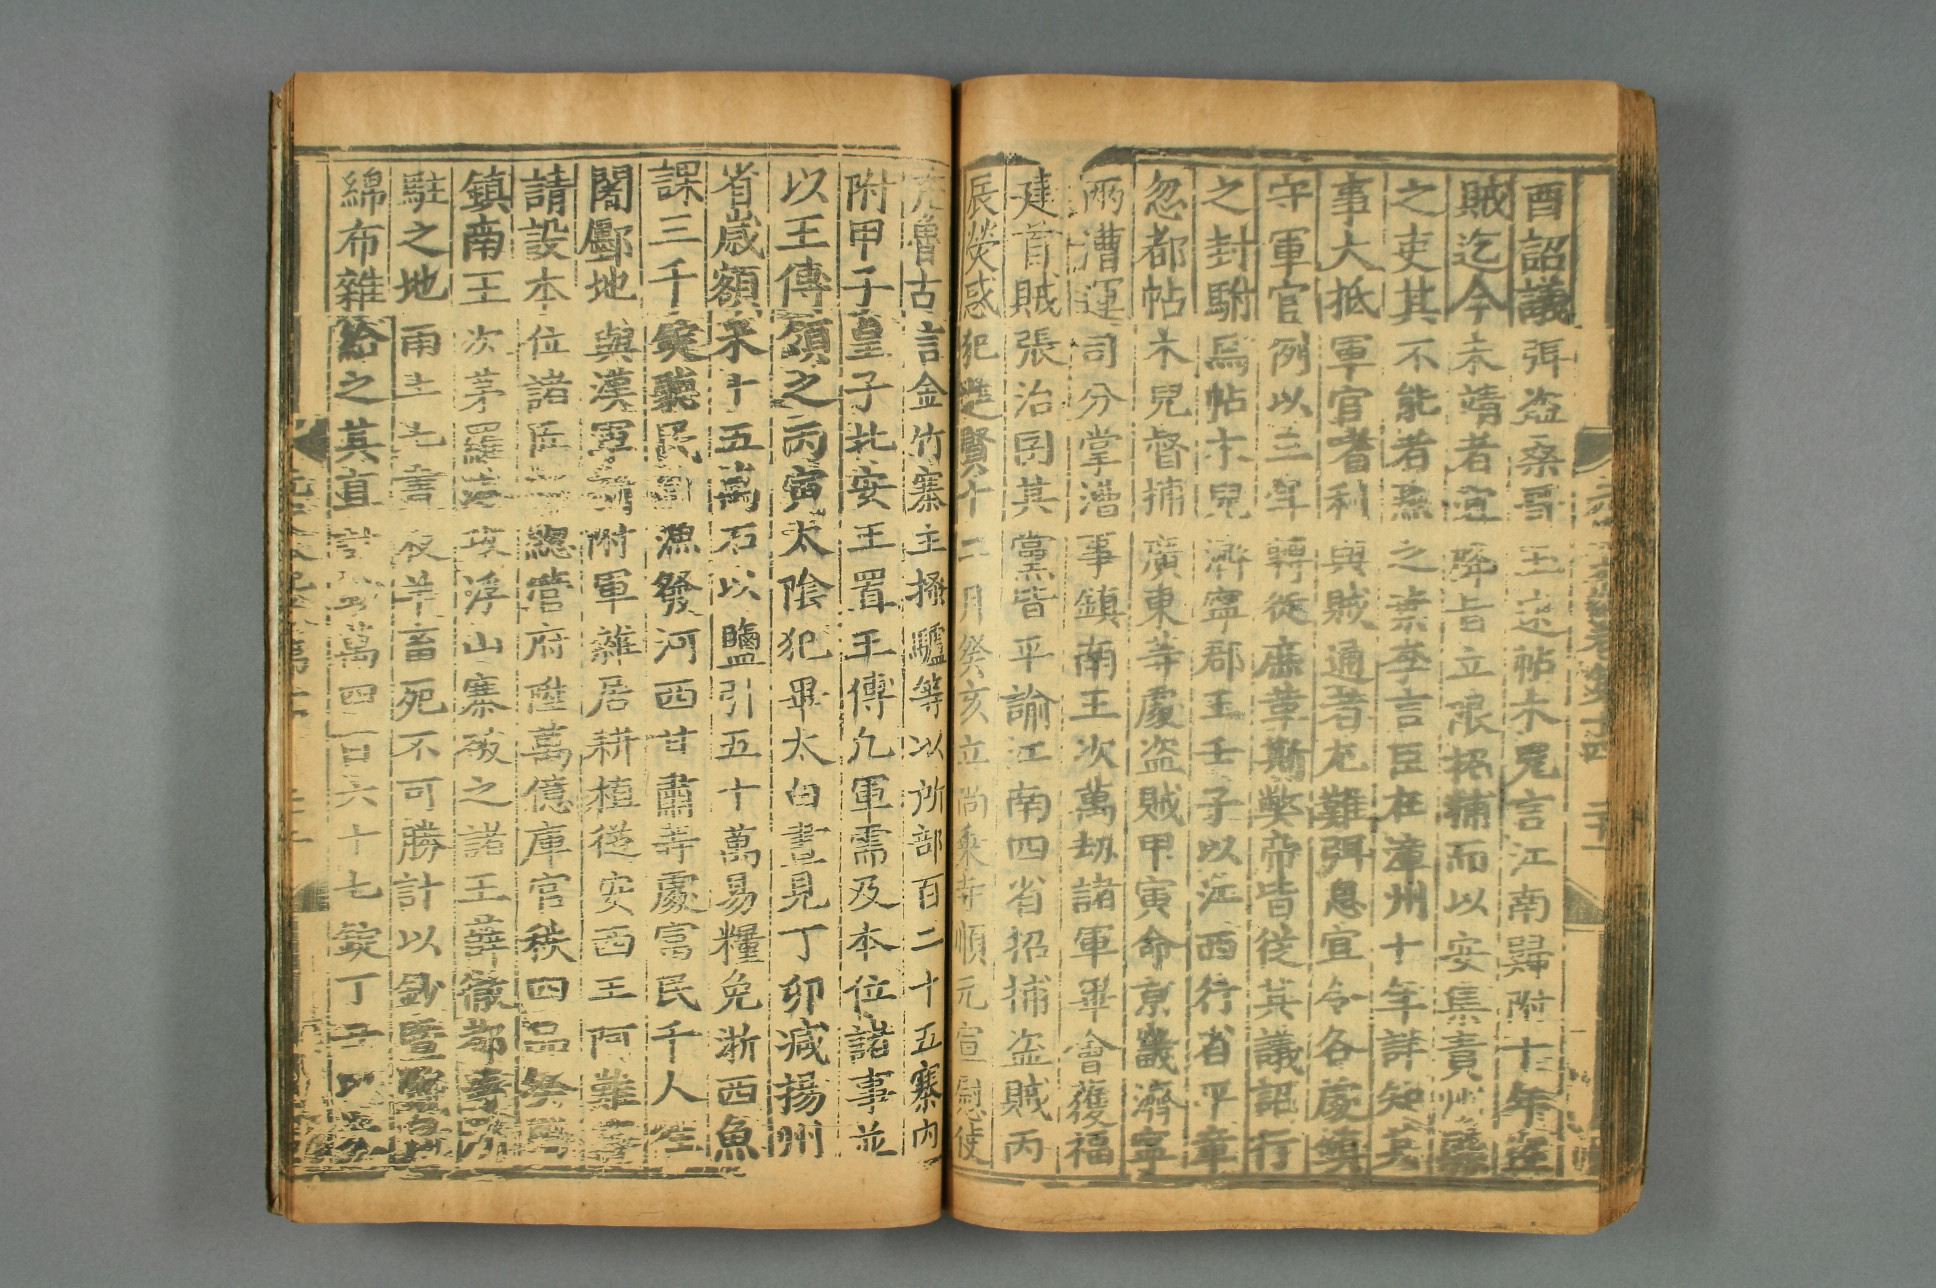 酉詔議弭盜桑哥玉速帖木兒言江南歸附十年盜
賊迄今未靖者宜降旨立限招捕而以安集責州縣
之吏其不能者黜之葉李言臣在漳州十年詳知其
事大抵軍官嗜利與賊通者尤難弭息宜令各處鎮
守軍官例以三年轉徙庶革斯弊帝皆從其議詔行
之封駙馬帖木兒濟寧郡王壬子以江西行省平章
忽都帖木兒督捕廣東等處盜賊甲寅命京畿濟寧
兩漕運司分掌漕事鎮南王次萬劫諸軍畢會獲福
建首賊張治囝其黨皆平諭江南四省招捕盜賊丙
辰熒惑犯進賢十二月癸亥立尚乘寺順元宣慰使
禿魯古言金竹寨主搔驢等以所部百二十五寨內
附甲子皇子北安王置王傅凡軍需及本位諸事並
以王傅領之丙寅太陰犯畢太白晝見丁卯減揚州
省歲額米十五萬石以鹽引五十萬易糧免浙西魚
課三千錠聽民自漁發河西甘肅等處富民千人往
闍鄽地與漢軍新附軍雜居耕植從安西王阿難荅
請設本位諸匠都總管府陞萬億庫官秩四品癸酉
鎮南王次茅羅港攻浮山寨破之諸王薛徹都等所
駐之地雨土七晝夜羊畜死不可勝計以鈔暨幣帛
綿布雜給之其直計鈔萬四百六十七錠丁丑以朱